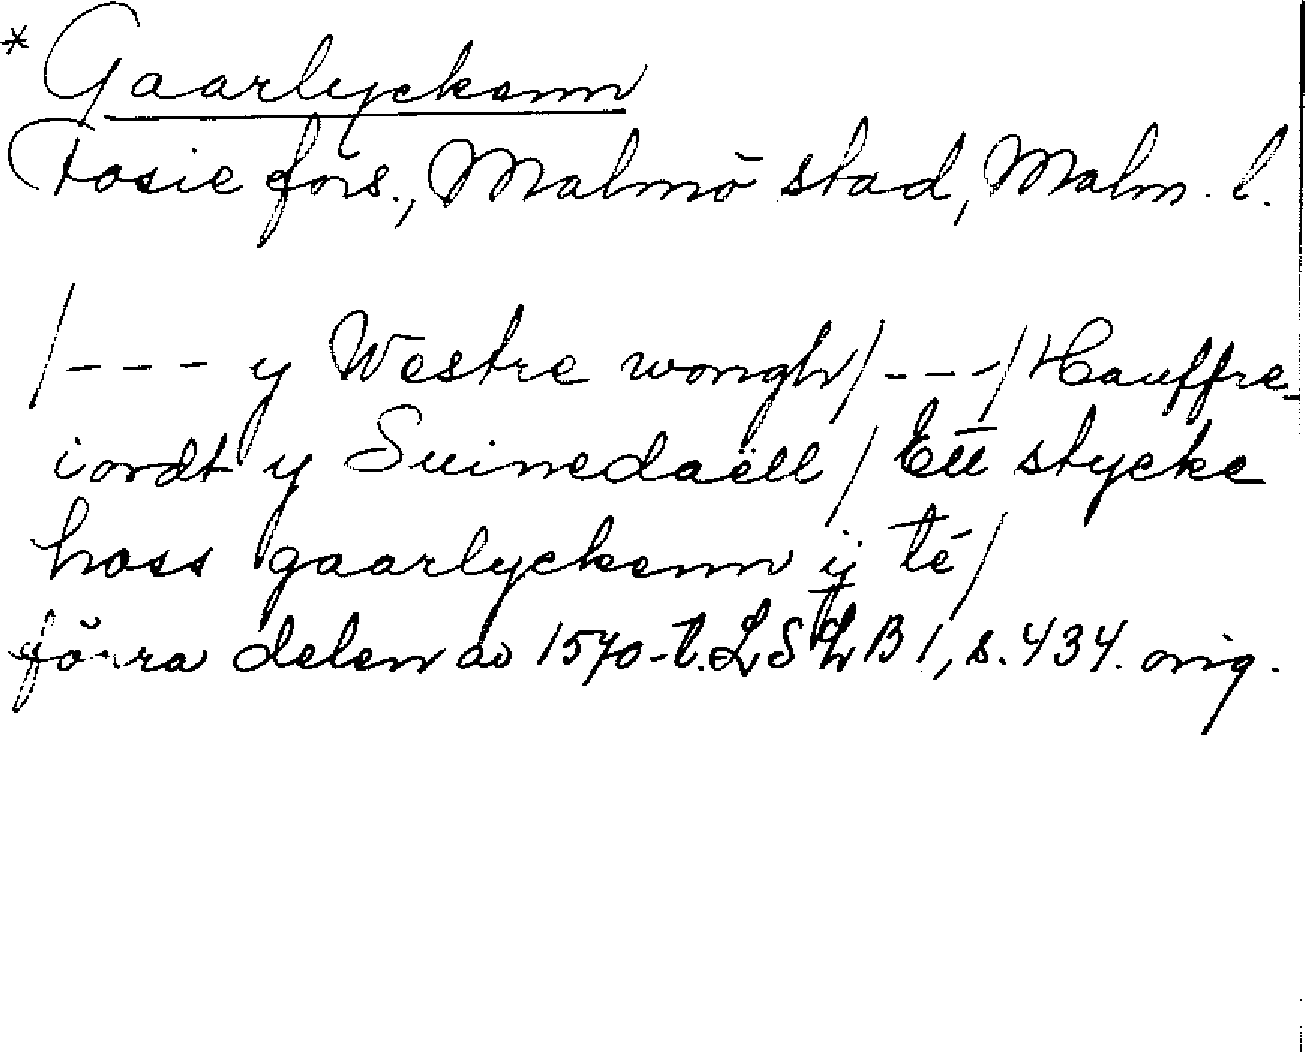 * Gaarlyckenn
Fosie förs., Malmö stad, Malm. l.
/--- y Westre wongh/---/Hauffre-
iordt y Suinedaëll / Ett stycke
hoss gaarlyckenn ÿ té/
förra delen av 1570-t. LSLB 1, s. 434. orig.